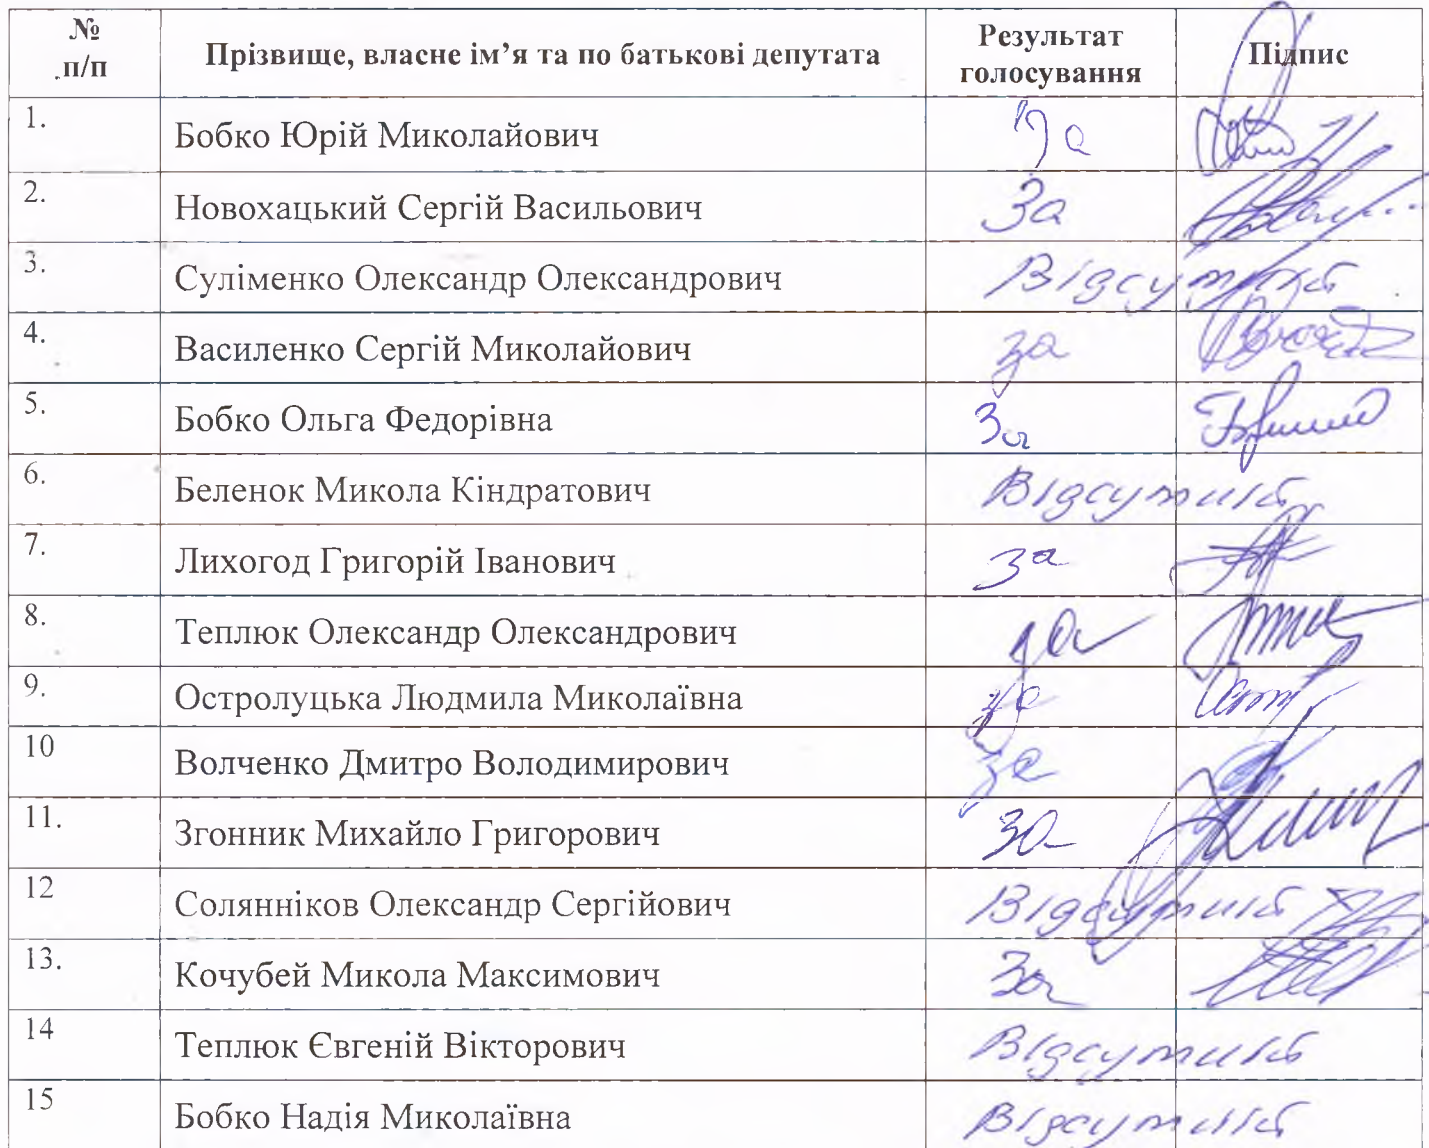 № п/п Прізвище, власне ім’я та по батькові депутата Результат голосування Підпис
1. Бобко Юрій Миколайович за
2. Новохацький Сергій Васильович За
3. Суліменко Олександр Олександрович Відсутній
4. Василенко Сергій Миколайович за
5. Бобко Ольга Федорівна За
6. Беленок Микола Кіндратович Відсутній
7. Лихогод Григорій Іванович за
8. Теплюк Олександр Олександрович за
9. Остролуцька Людмила Миколаївна за
10 Волченко Дмитро Володимирович за
11. Згонник Михайло Григорович за
12 Солянніков Олександр Сергійович Відсутній
13. Кочубей Микола Максимович За
14 Теплюк Євгеній Вікторович Відсутній
15 Бобко Надія Миколаївна Відсутній